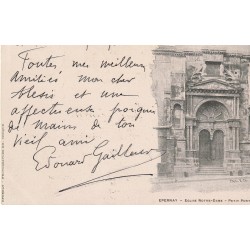 Toutes mes meilleures
Amitiés mon cher
Alexis et une
affectueuse poignée
de mains de ton
vieil ami
Edouard
EPERNAY – Eglise Notre-Dame – Petit Port